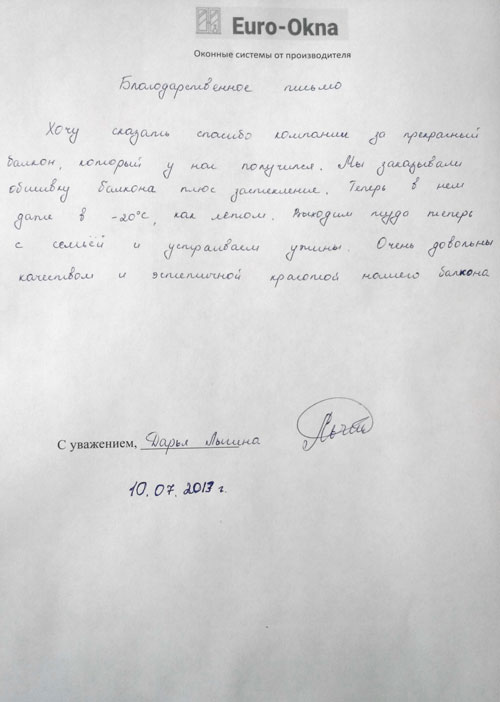 Euro-Okna
Оконные системы от производителя
Благодарственное письмо
Хочу сказать спасибо компании за прекрасный
балкон, который у нас получился. Мы заказывали
обшивку балкона плюс застекление. Теперь в нем
даже в -20°С, как летом. Выходим туда теперь
с семьёй и устраиваем ужины. Очень довольны
качеством и эстетичной красотой нашего балкона
С уважением, Дарья
10.07.2017 г.